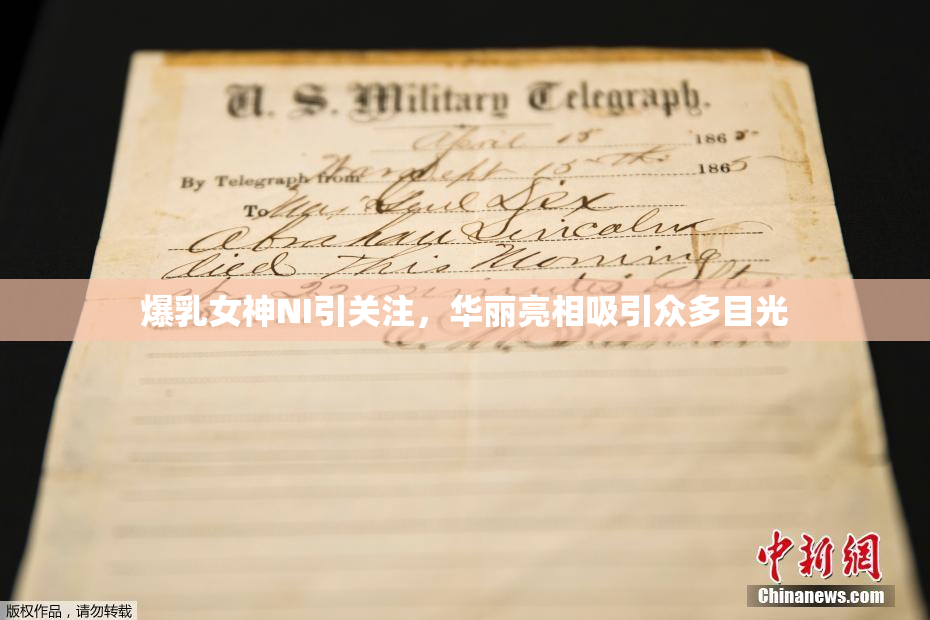 U. S. Military Telegraph.
April 15 1865
By Telegraph from War Dept 15th 1865
To Maj Genl Dix
Abraham Lincoln
died This Morning
at 22 minutes after
爆乳女神NI引关注，华丽亮相吸引众多目光
E. M. Stanton
中新网
Chinanews.com
版权作品，请勿转载